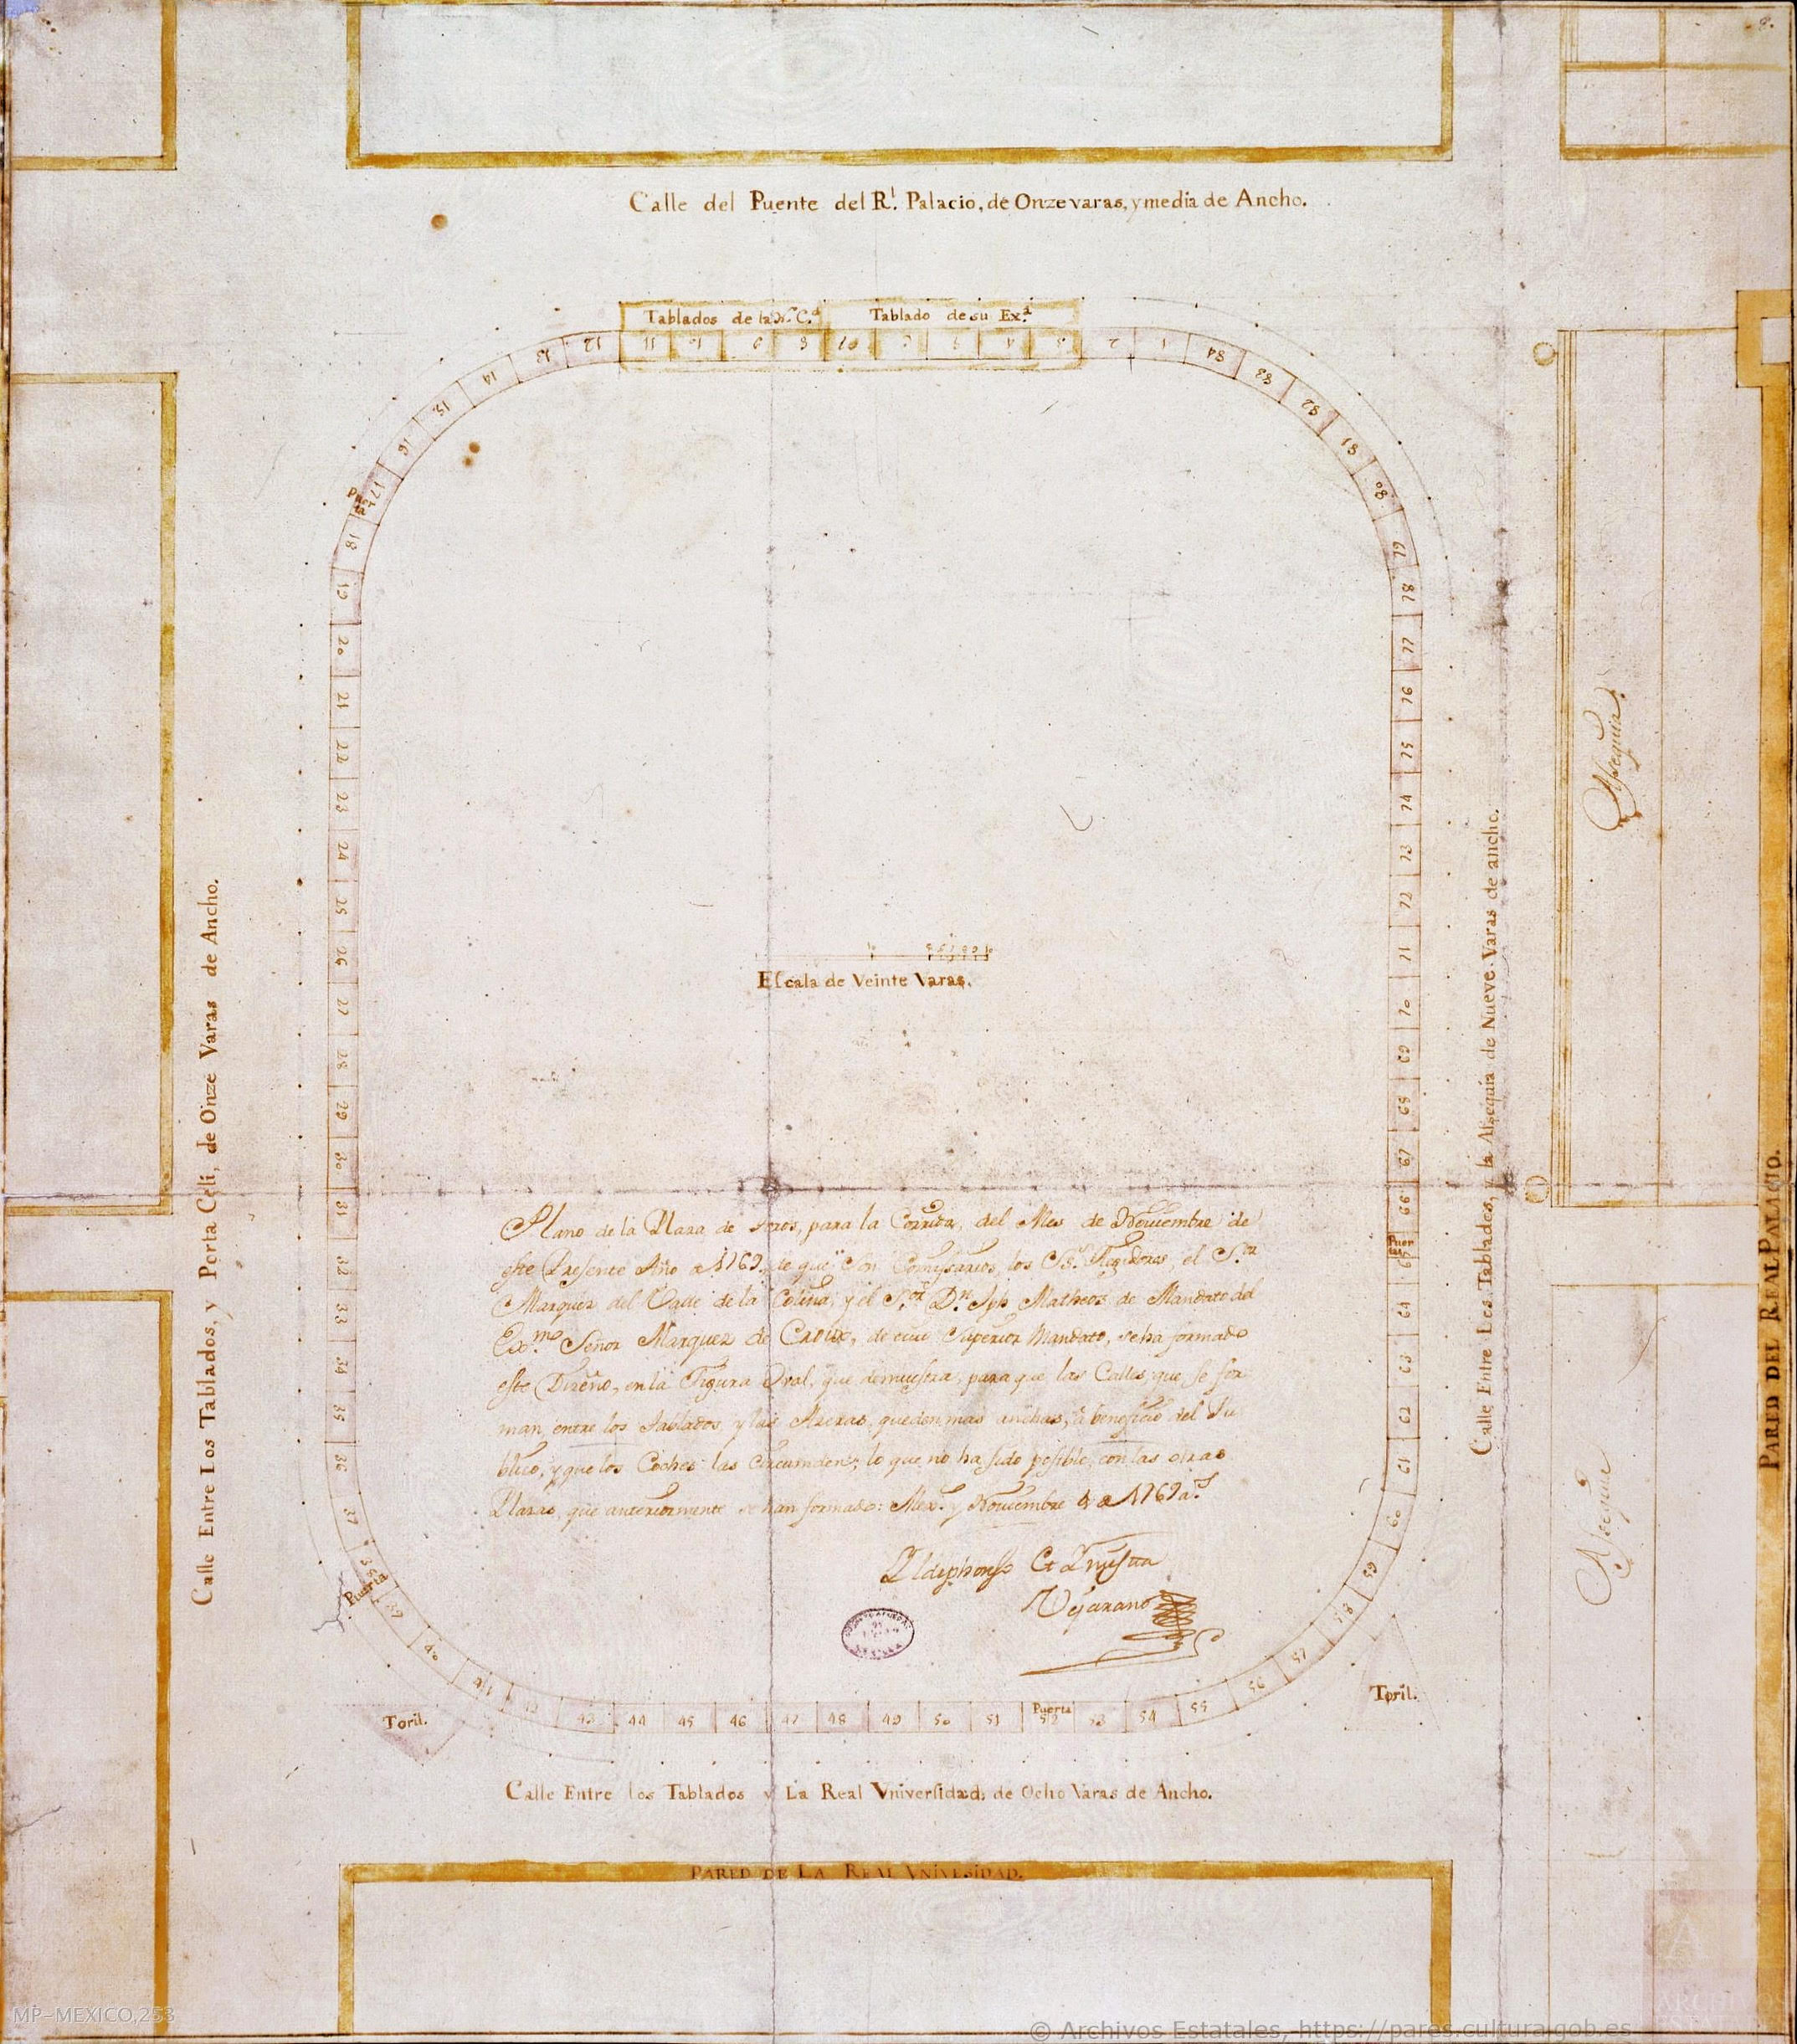 Calle del Puente del R.l Palacio, de Onze varas, y media de Ancho.
Tablados de la N. C.d
Tablado de su Ex.a
12
11
10
9
8
7
6
5
4
3
2
1
84
83
82
81
80
79
78
77
76
75
74
73
72
71
70
69
68
67
66
Puer
tas
64
63
62
61
60
59
58
57
56
55
54
53
Puerta
52
51
50
49
48
47
46
45
44
43
41
40
39
Puerta
38
37
36
35
34
33
32
31
30
29
28
27
26
25
24
23
22
21
20
19
18
17
Puer
ta
16
15
14
13
Escala de Veinte Varas.
Calle Entre Los Tablados, y Porta Celi, de Onze Varas de Ancho.
Calle Entre Los Tablados, y la Alsequia de Nueve Varas de ancho.
Alsequia
Alsequia
PARED DEL REAL PALACIO.
Plano de la Plaza de toros, para la Corrida, del Mes de Noviembre de
este Presente Año de 1769, de que Son Comissarios, los S.S. Regidores, el S.or
Marques del Valle de la Colina, y el S.or D.n Jph Matheos de Mandato del
Ex.mo Señor Marquez de Croix, de cuio Superior Mandato, se ha formado
este Diseño, en la Figura Oval, que demuestra, para que las Calles, que se for
man, entre los tablados, y las Azeras, queden mas anchas, á beneficio del Pu
blico, y que los Coches las circumden, lo que no ha sido posible, con las otras
Plazas, que anteriormente se han formado: Mex.co y Noviembre 4 de 1769 a.s
Ildephonso Yniesta
Vejarano
Toril.
Toril.
Calle Entre los Tablados y La Real Vniversidad, de Ocho Varas de Ancho.
PARED DE LA REAL VNIVESIDAD.
MP-MEXICO,253
© Archivos Estatales, https://pares.cultura.gob.es